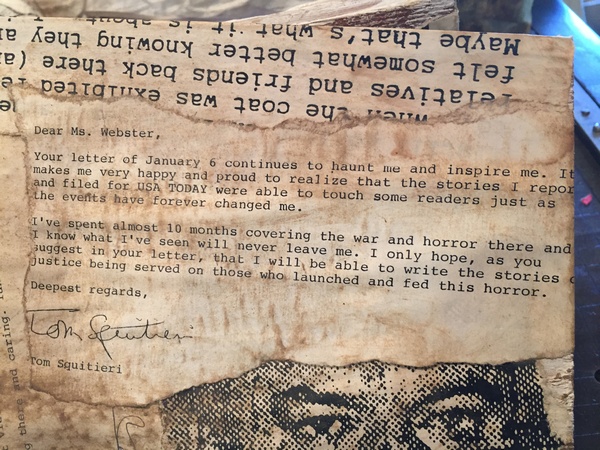 Maybe that's what it is about
felt somewhat better knowing they
relatives and friends back there
when the coat was exhibited
Dear Ms. Webster,
Your letter of January 6 continues to haunt me and inspire me. It
makes me very happy and proud to realize that the stories I repor
and filed for USA TODAY were able to touch some readers just as
the events have forever changed me.
I've spent almost 10 months covering the war and horror there and
I know what I've seen will never leave me. I only hope, as you
suggest in your letter, that I will be able to write the stories
justice being served on those who launched and fed this horror.
Deepest regards,
Tom Squitieri
Tom Squitieri
there and caring.